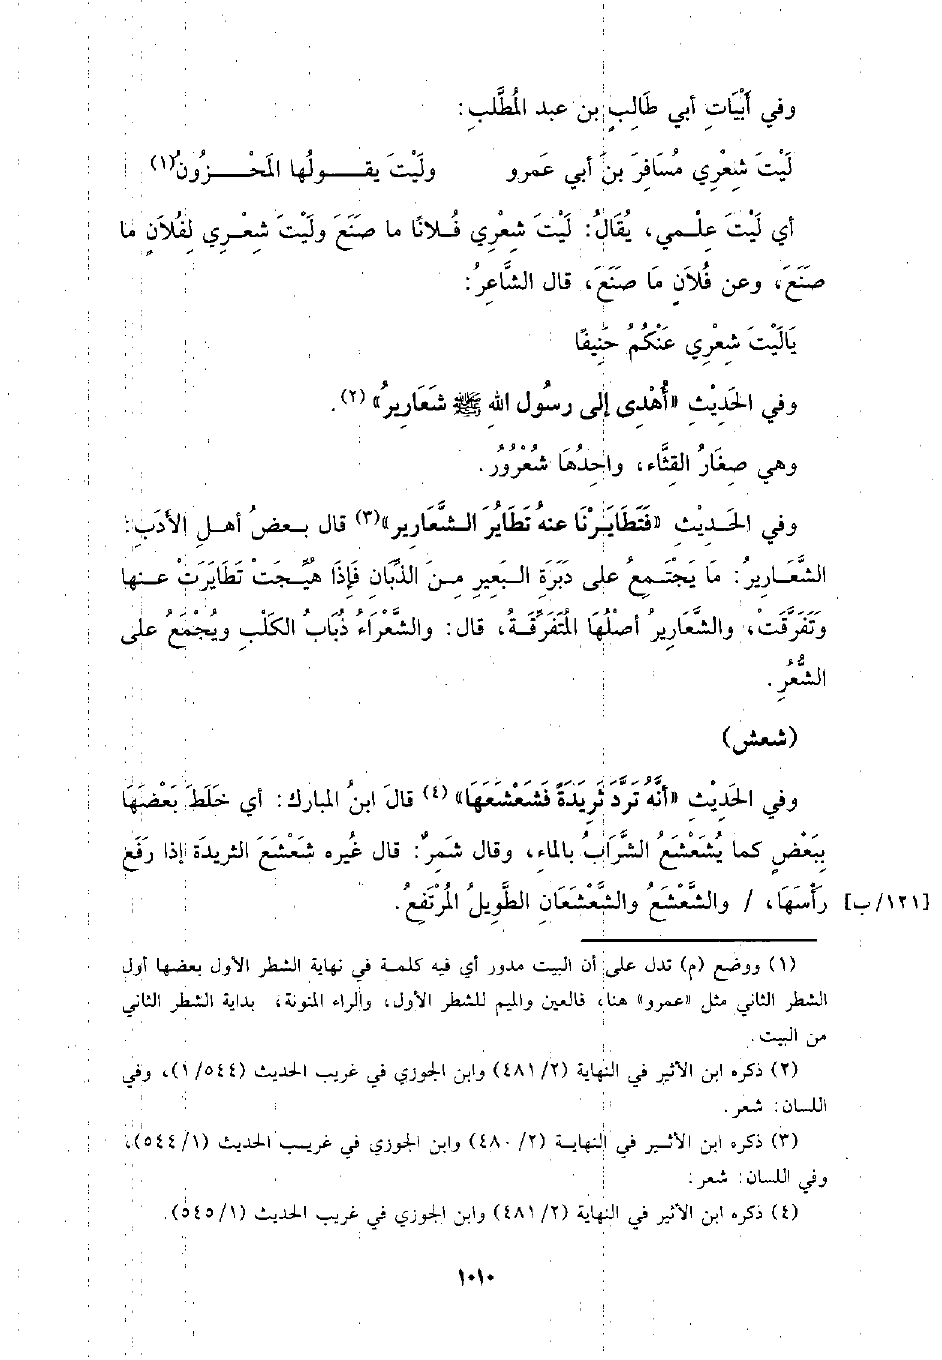 وفي أَبْيَاتِ أبي طَالِبٍ بن عبد المُطَّلبِ:
لَيْتَ شِعْرِي مُسَافِرَ بنَ أبي عَمرو وليْتَ يقـــولُها المَحْــزُونُ(١)
أي لَيْتَ عِلْمي، يُقَالُ: لَيْتَ شِعْرِي فُـلانًا ما صنَعَ ولَيْتَ شعْـري لفُلاَنٍ مَا
صَنَعَ، وعن فُلاَنٍ مَا صنَعَ، قال الشَّاعِرُ:
يَالَيْتَ شِعْرِي عَنْكُمُ حَنِيفًا
وفي الحَدِيْثِ «أُهْدِى إلى رسُول اللهِ ﷺ شَعَارِيرُ»(٢).
وهي صغَارُ القثَّاء، واحِدُهَا شُعْرُورُ.
وفي الحَـديْثِ «فَتَطَايَرْنَا عنهُ تَطَايُرَ الـشَّعَارِير»(٣) قال بـعضُ أهـلِ الأدَبِ:
الشَّعَـارِيرُ: مَا يَجْتَـمِعُ على دَبَرَةِ الـبَعِيرِ مِـنَ الذِّبَّانِ فَإذَا هُيِّـجَتْ تَطَايَرَتْ عـنها
وَتَفَرَّقَتْ، والشَّعَارِيرُ أصلُهَا المُتَفَرِّقَـةُ، قال: والشَّعْرَاءُ ذُبَابُ الكَلْبِ ويُجْمَعُ على
الشُّعُرِ.
(شعش)
وفي الحَدِيْثِ «أنَّهُ ثَرَّدَ ثَرِيدَةً فَشَعْشَعَهَا»(٤) قالَ ابنُ المبارك: أي خَلَطَ بَعْضَهَا
بِبَعْضٍ كما يُشَعْشَعُ الشَّرَابُ بالماءِ، وقال شَمِرٌ: قال غَيره شَعْشَعَ الثريدَةَ إذا رفَعَ
رَأْسَهَا، / والشَّعْشَعُ والشَّعْشَعَانِ الطَّويلُ المُرْتَفِعُ. [١٢١/ب]
(١) ووضع (م) تدل على أن البيت مدور أي فيه كلمة في نهاية الشطر الأول بعضها أول
الشطر الثاني مثل «عمرو» هنا، فالعين والميم للشطر الأول، والراء المنونة، بداية الشطر الثاني
من البيت.
(٢) ذكره ابن الأثير في النهاية (٤٨١/٢) وابن الجوزي في غريب الحديث (١/٥٤٤)، وفي
اللسان: شعر.
(٣) ذكره ابن الأثـير في النهايـة (٤٨٠/٢) وابن الجوزي في غريـب الحديث (٥٤٤/١)،
وفي اللسان: شعر:
(٤) ذكره ابن الأثير في النهاية (٤٨١/٢) وابن الجوزي في غريب الحديث (٥٤٥/١).
١٠١٠